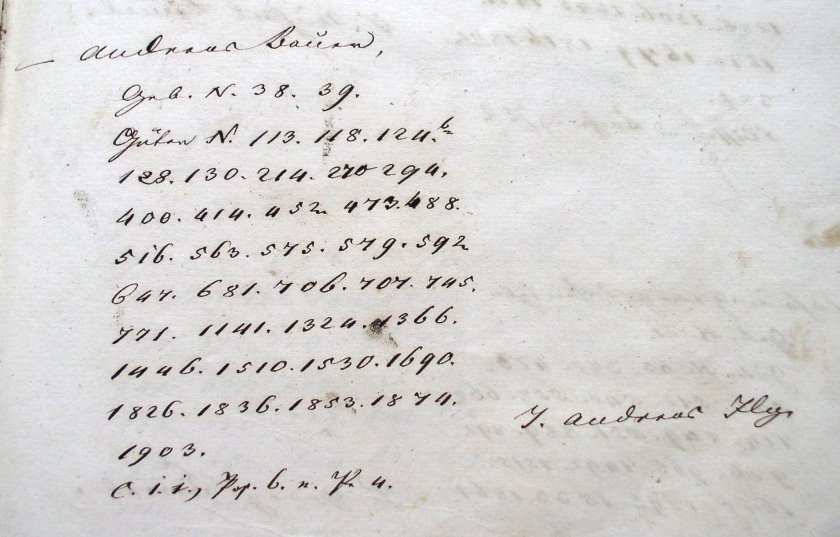 Andreas Bauer,
Geb. N. 38. 39.
Güter N. 113. 118. 124.b
128. 130. 214. 270 294.
400. 414. 452 473. 488.
516. 563. 575. 579. 592
647. 681. 706. 707. 745.
771. 1141. 1324. 1366.
1446. 1510. 1530. 1690.
1826. 1836. 1853. 1874.
J. Andreas
1903.
C. i. i., b. n. 4.